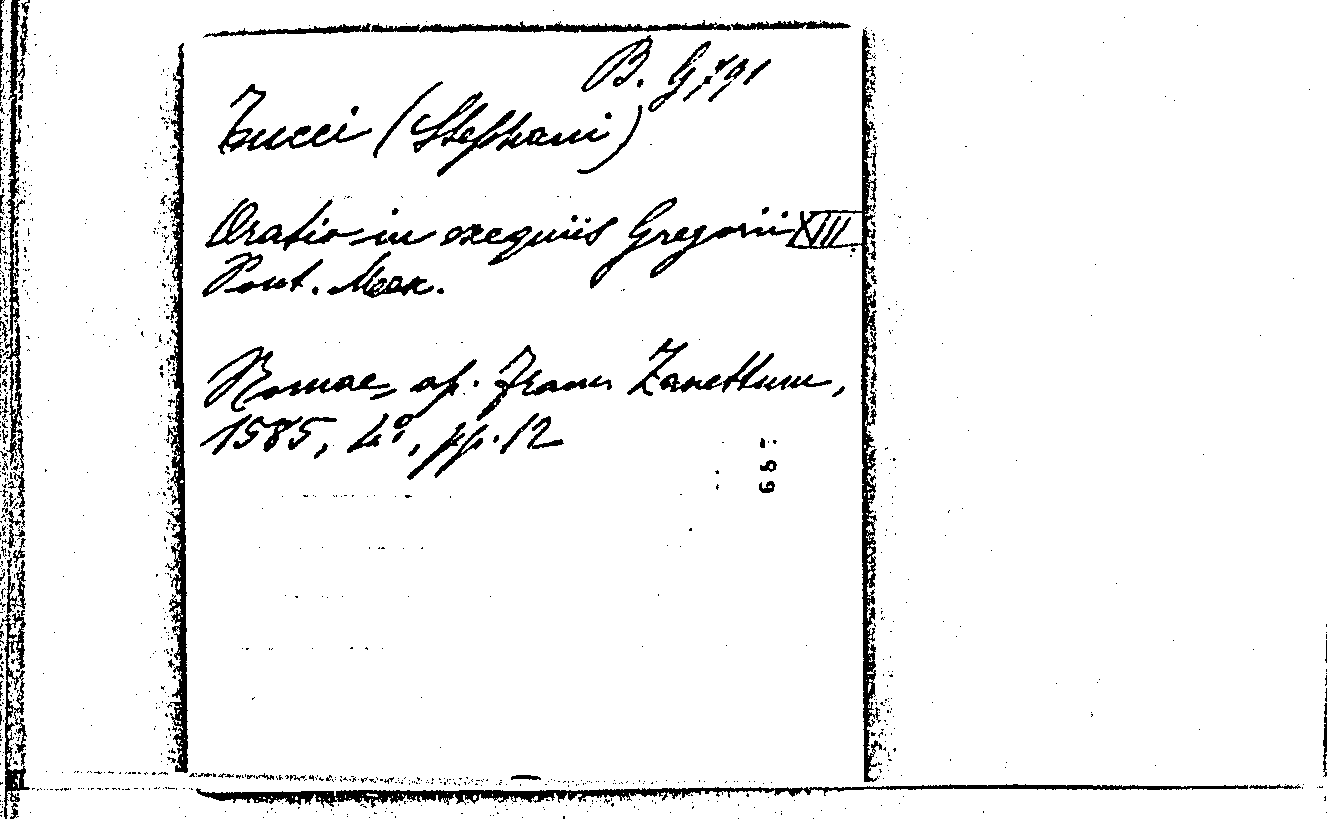 B. G, 791
Tucci (Stephani)
Oratio in exequiis Gregorii XIII
Pont. Max.
Romae, ap. Franc Zanettum,
1585, 4º, pp. 12